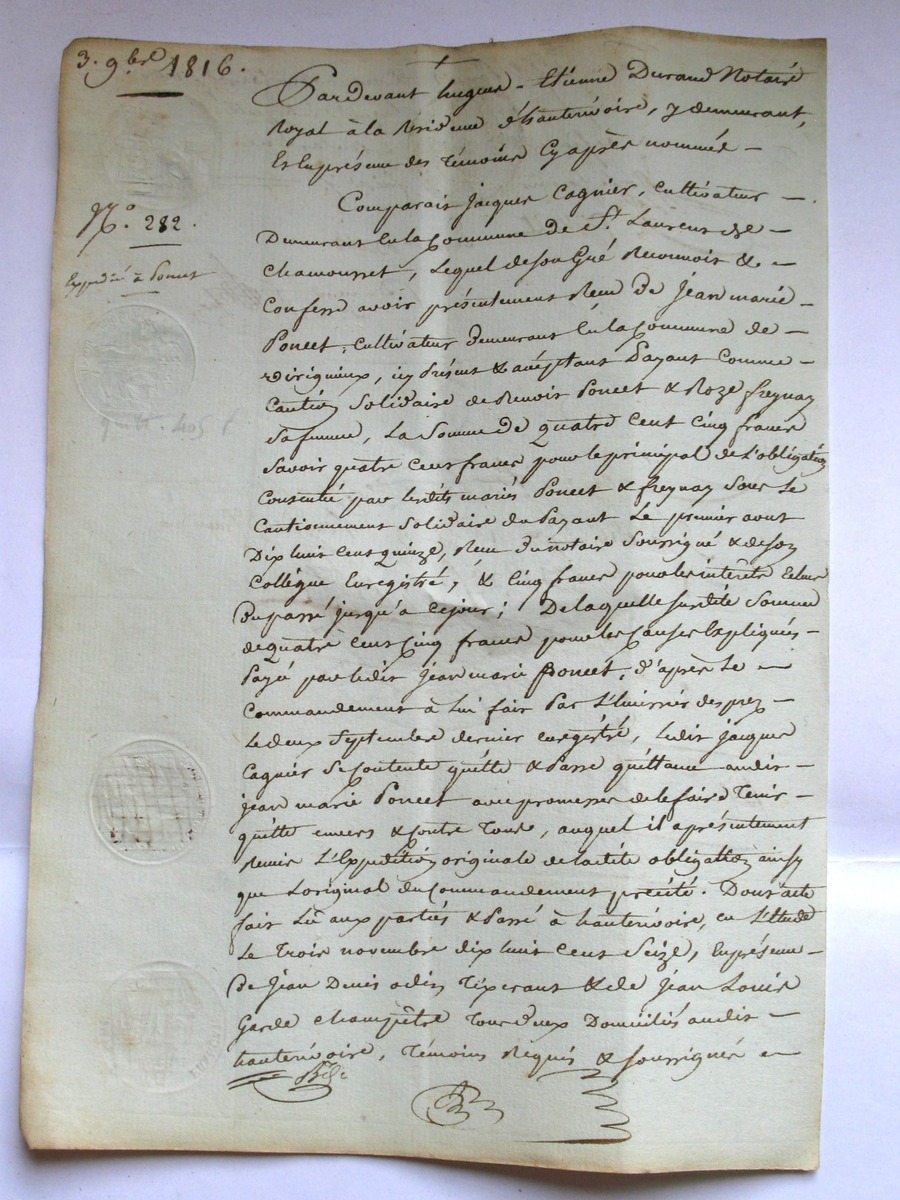 3. 9bre 1816.
Pardevant hugues - Etienne Durand Notaire
Royal à la Residence d'hauterivoire, y demeurant,
Et En présence des Témoins Cy après nommés -
N.o 282.
Comparait Jacques Cagnier, Cultivateur -
Demeurant En la Commune de St. Laurent de -
Expédié à Poncet
Chamousset, Lequel de son Gré Reconnoit & -
Confesse avoir présentement Recu de Jean marie -
Poncet, Cultivateur demeurant En la Commune de -
, icy Présent & acceptant Payant Comme -
Caution Solidaire de Benoit Poncet & Roze freynay
Sa femme, La Somme de quatre cent cinq francs
Savoir quatre Cent francs pour le principal de L'obligation
Consentie par lesdits mariés Poncet & freynay Sous Le
Cautionnement Solidaire du Payant Le premier aout
Dix huit Cent quinze, Recu du notaire Soussigné & de Son
Collègue Enregistré, & Cinq francs pour les interêts Echus
Du passé jusqu'a ce jour; De laquelle Susdite Somme
de quatre Cent Cinq francs pour les Causes Expliquées -
Payé par ledit Jean marie Poncet, d'après Le -
Commandement à Lui fait Par L'huissier desprez -
Le deux Septembre dernier enregistré, Ledit Jacques
Cagnier Se Contente quitte & Passe quittance audit -
Jean marie Poncet avec promesse de le faire Tenir -
quitte envers & Contre Tous, auquel il a présentement
Remis L'Expédition originale de ladite obligation ainsy
que L'original du Commandement précité. Dont acte
fait Lû aux parties & Passé à hauterivoire, en L'Etude
Le Trois novembre dix huit Cent Seize, En présence -
de Jean Denis Tixerant & de Jean Louis
Garde Champêtre Tous deux Domiciliés audit -
hauterivoire, Témoins Requis & Soussignés -